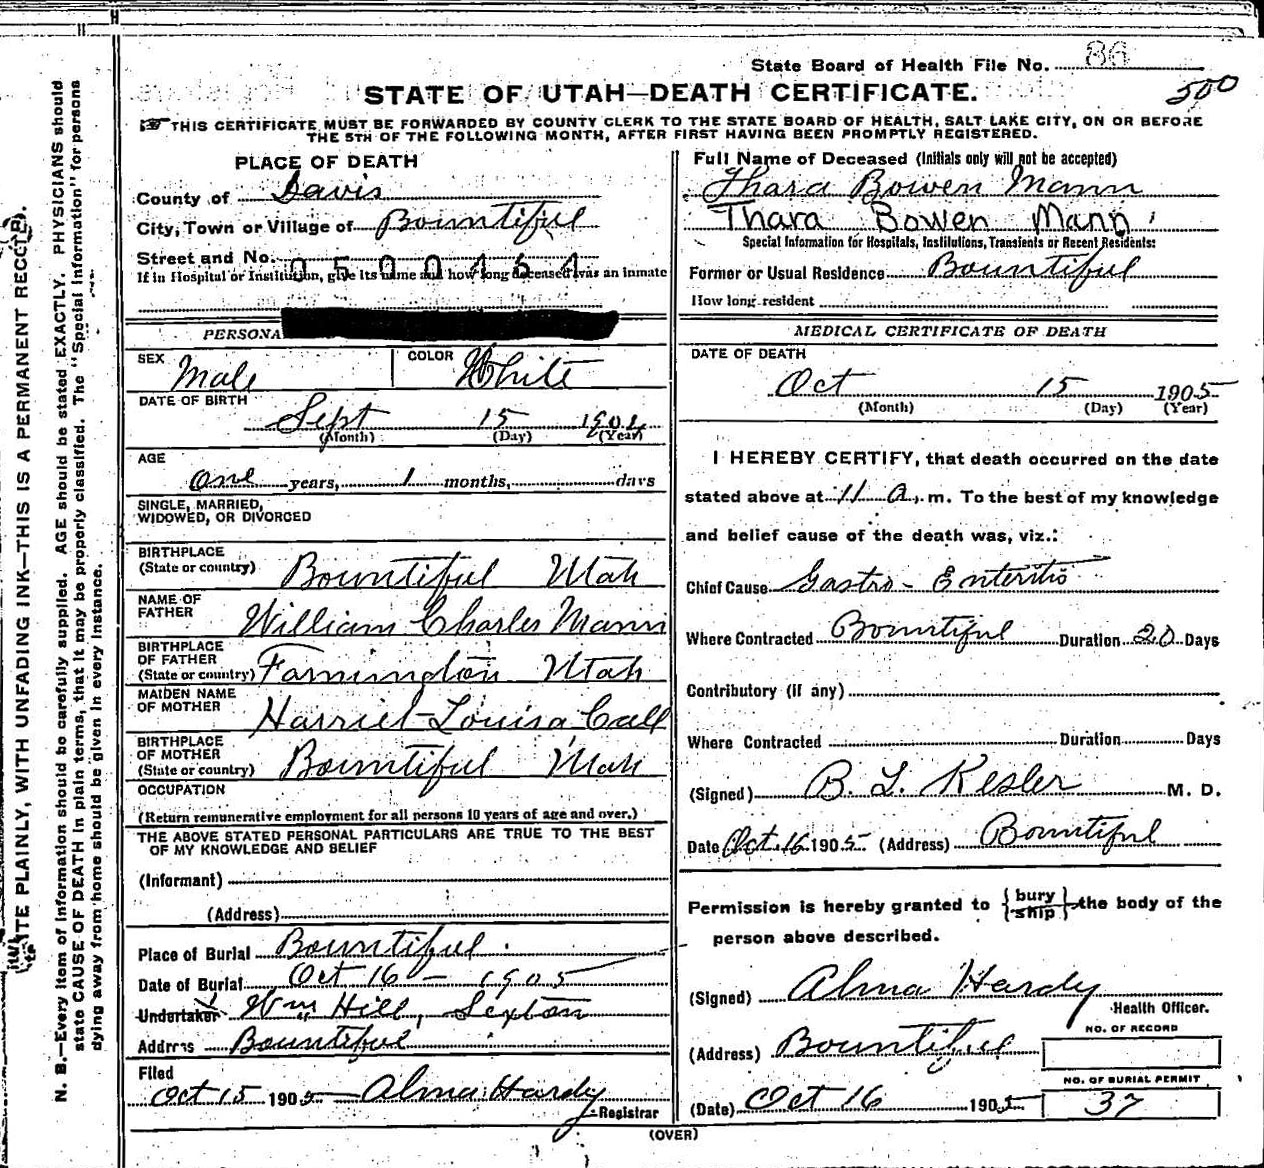 State Board of Health File No. 86
500
STATE OF UTAH—DEATH CERTIFICATE.
THIS CERTIFICATE MUST BE FORWARDED BY COUNTY CLERK TO THE STATE BOARD OF HEALTH, SALT LAKE CITY, ON OR BEFORE
THE 5TH OF THE FOLLOWING MONTH, AFTER FIRST HAVING BEEN PROMPTLY REGISTERED.
PLACE OF DEATH
County of Davis
City, Town or Village of Bountiful
Street and No. 0500454
If in Hospital or Institution, give its name and how long deceased was an inmate
PERSONA
SEX Male COLOR White
DATE OF BIRTH
Sept 15 1904
(Month) (Day) (Year)
AGE
one years, 1 months, days
SINGLE, MARRIED,
WIDOWED, OR DIVORCED
BIRTHPLACE
(State or country) Bountiful Utah
NAME OF
FATHER William Charles Mann
BIRTHPLACE
OF FATHER
(State or country) Farmington Utah
MAIDEN NAME
OF MOTHER Harriet Louisa Call
BIRTHPLACE
OF MOTHER
(State or country) Bountiful Utah
OCCUPATION
(Return remunerative employment for all persons 10 years of age and over.)
THE ABOVE STATED PERSONAL PARTICULARS ARE TRUE TO THE BEST
OF MY KNOWLEDGE AND BELIEF
(Informant)
(Address)
Place of Burial Bountiful.
Date of Burial Oct 16 — 1905
Undertaker Wm Hill, Sexton
Address Bountiful
Filed
Oct 15 1905 Alma Hardy
Registrar
Full Name of Deceased (Initials only will not be accepted)
Thara Bowen Mann
Thara Bowen Mann
Special Information for Hospitals, Institutions, Transients or Recent Residents:
Former or Usual Residence Bountiful
How long resident
MEDICAL CERTIFICATE OF DEATH
DATE OF DEATH
Oct 15 1905
(Month) (Day) (Year)
I HEREBY CERTIFY, that death occurred on the date
stated above at 11 a. m. To the best of my knowledge
and belief cause of the death was, viz.:
Chief Cause Gastro-Enteritis
Where Contracted Bountiful Duration 20 Days
Contributory (if any)
Where Contracted Duration Days
(Signed) B. L. Kesler M. D.
Date Oct. 16 1905 (Address) Bountiful
Permission is hereby granted to {bury
ship} the body of the
person above described.
(Signed) Alma Hardy
Health Officer.
(Address) Bountiful
NO. OF RECORD
NO. OF BURIAL PERMIT
(Date) Oct 16 1905 37
(OVER)
ITE PLAINLY, WITH UNFADING INK—THIS IS A PERMANENT RECORD.
N. B.—Every item of information should be carefully supplied. AGE should be stated EXACTLY. PHYSICIANS should
state CAUSE OF DEATH in plain terms, that it may be properly classified. The "Special Information" for persons
dying away from home should be given in every instance.